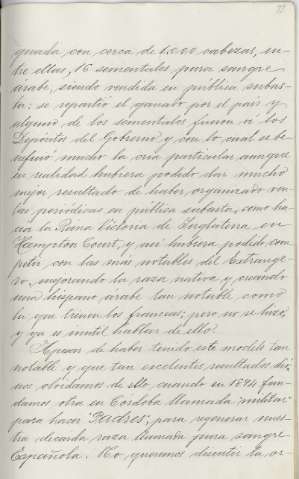 guada, con cerca de 1.000 cabezas, en-
tre ellas, 16 sementales pura sangre
árabe, siendo vendida en pública subas-
ta: se repartió el ganado por el país y
alguno de los sementales fueron á los
Depósitos del Gobierno y con lo cual se be-
neficio mucho la cría particular aunque
en realidad hubiera podido dar mucho
mejor resultado de haber organizado ven-
tas periódicas en pública subasta, como ha-
cía la Reina Victoria de Inglaterra, en
Hampton Court, y así hubiera podido com-
petir con las más notables del Extrange-
ro, mejorando la raza nativa y creando
una hispano árabe tan notable como
la que tienen los franceses; pero no se hizo,
y ya es inútil hablar de ello.
Apesar de haber tenido este modelo tan
notable y que tan excelentes resultados dió,
nos olvidamos de ello, cuando en 1894 fun-
damos otra en Córdoba llamada "militar"
para hacer "Padres", para regenerar nues-
tra decaída raza llamada pura sangre
Española. No queremos discutir la or-